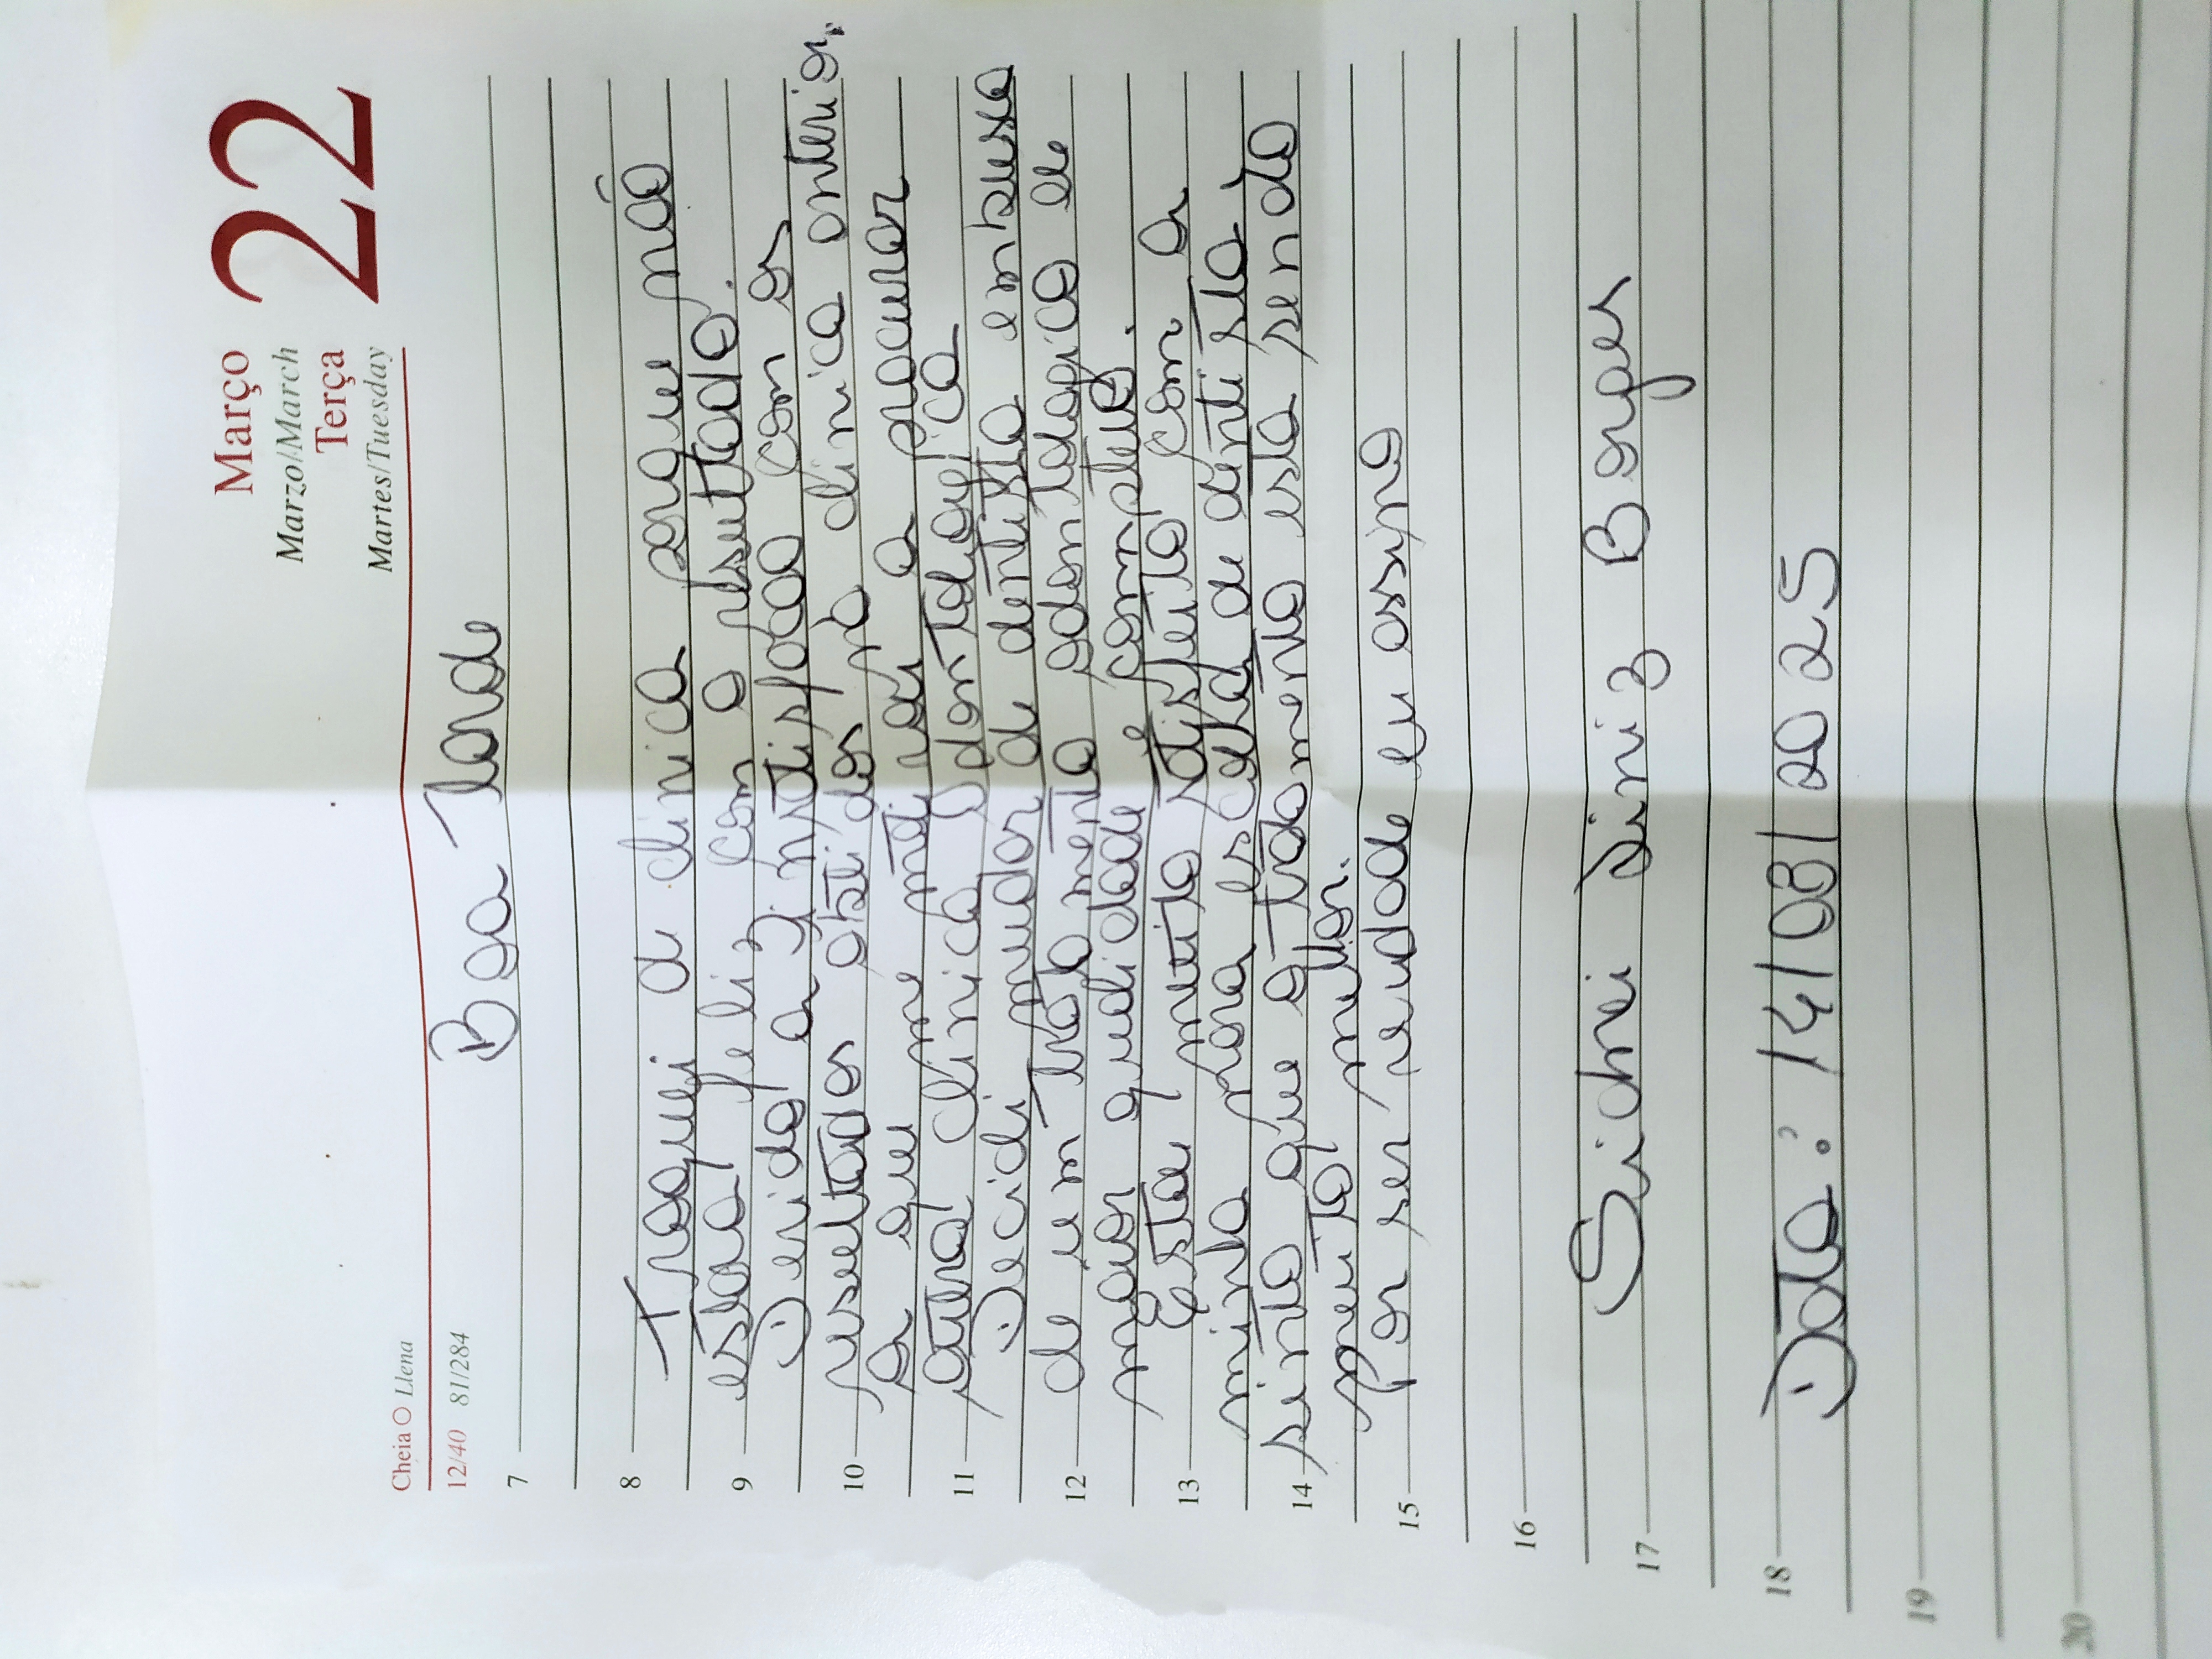 Março
Marzo/March
Terça
Martes/Tuesday
22
Cheia O Llena
12/40 81/284
Boa Tarde
7
8 Troquei a clinica porque não
estava feliz com o resultado.
9 Devido a insatisfação com os
resultados obtidos na clinica anterior,
10 o que me motivou a procurar
outra clinica Odontologica
11 Decidi mudar de dentista em busca
de um tratamento odontologico de
12 maior qualidade e completude.
Estou muito satisfeito com a
13 minha nova escolha de dentista,
sinto que o tratamento esta sendo
14 muito melhor.
Por ser verdade eu assino
15
16
17 Sidnei Diniz Borges
18 Data: 14/08/2025
19
20